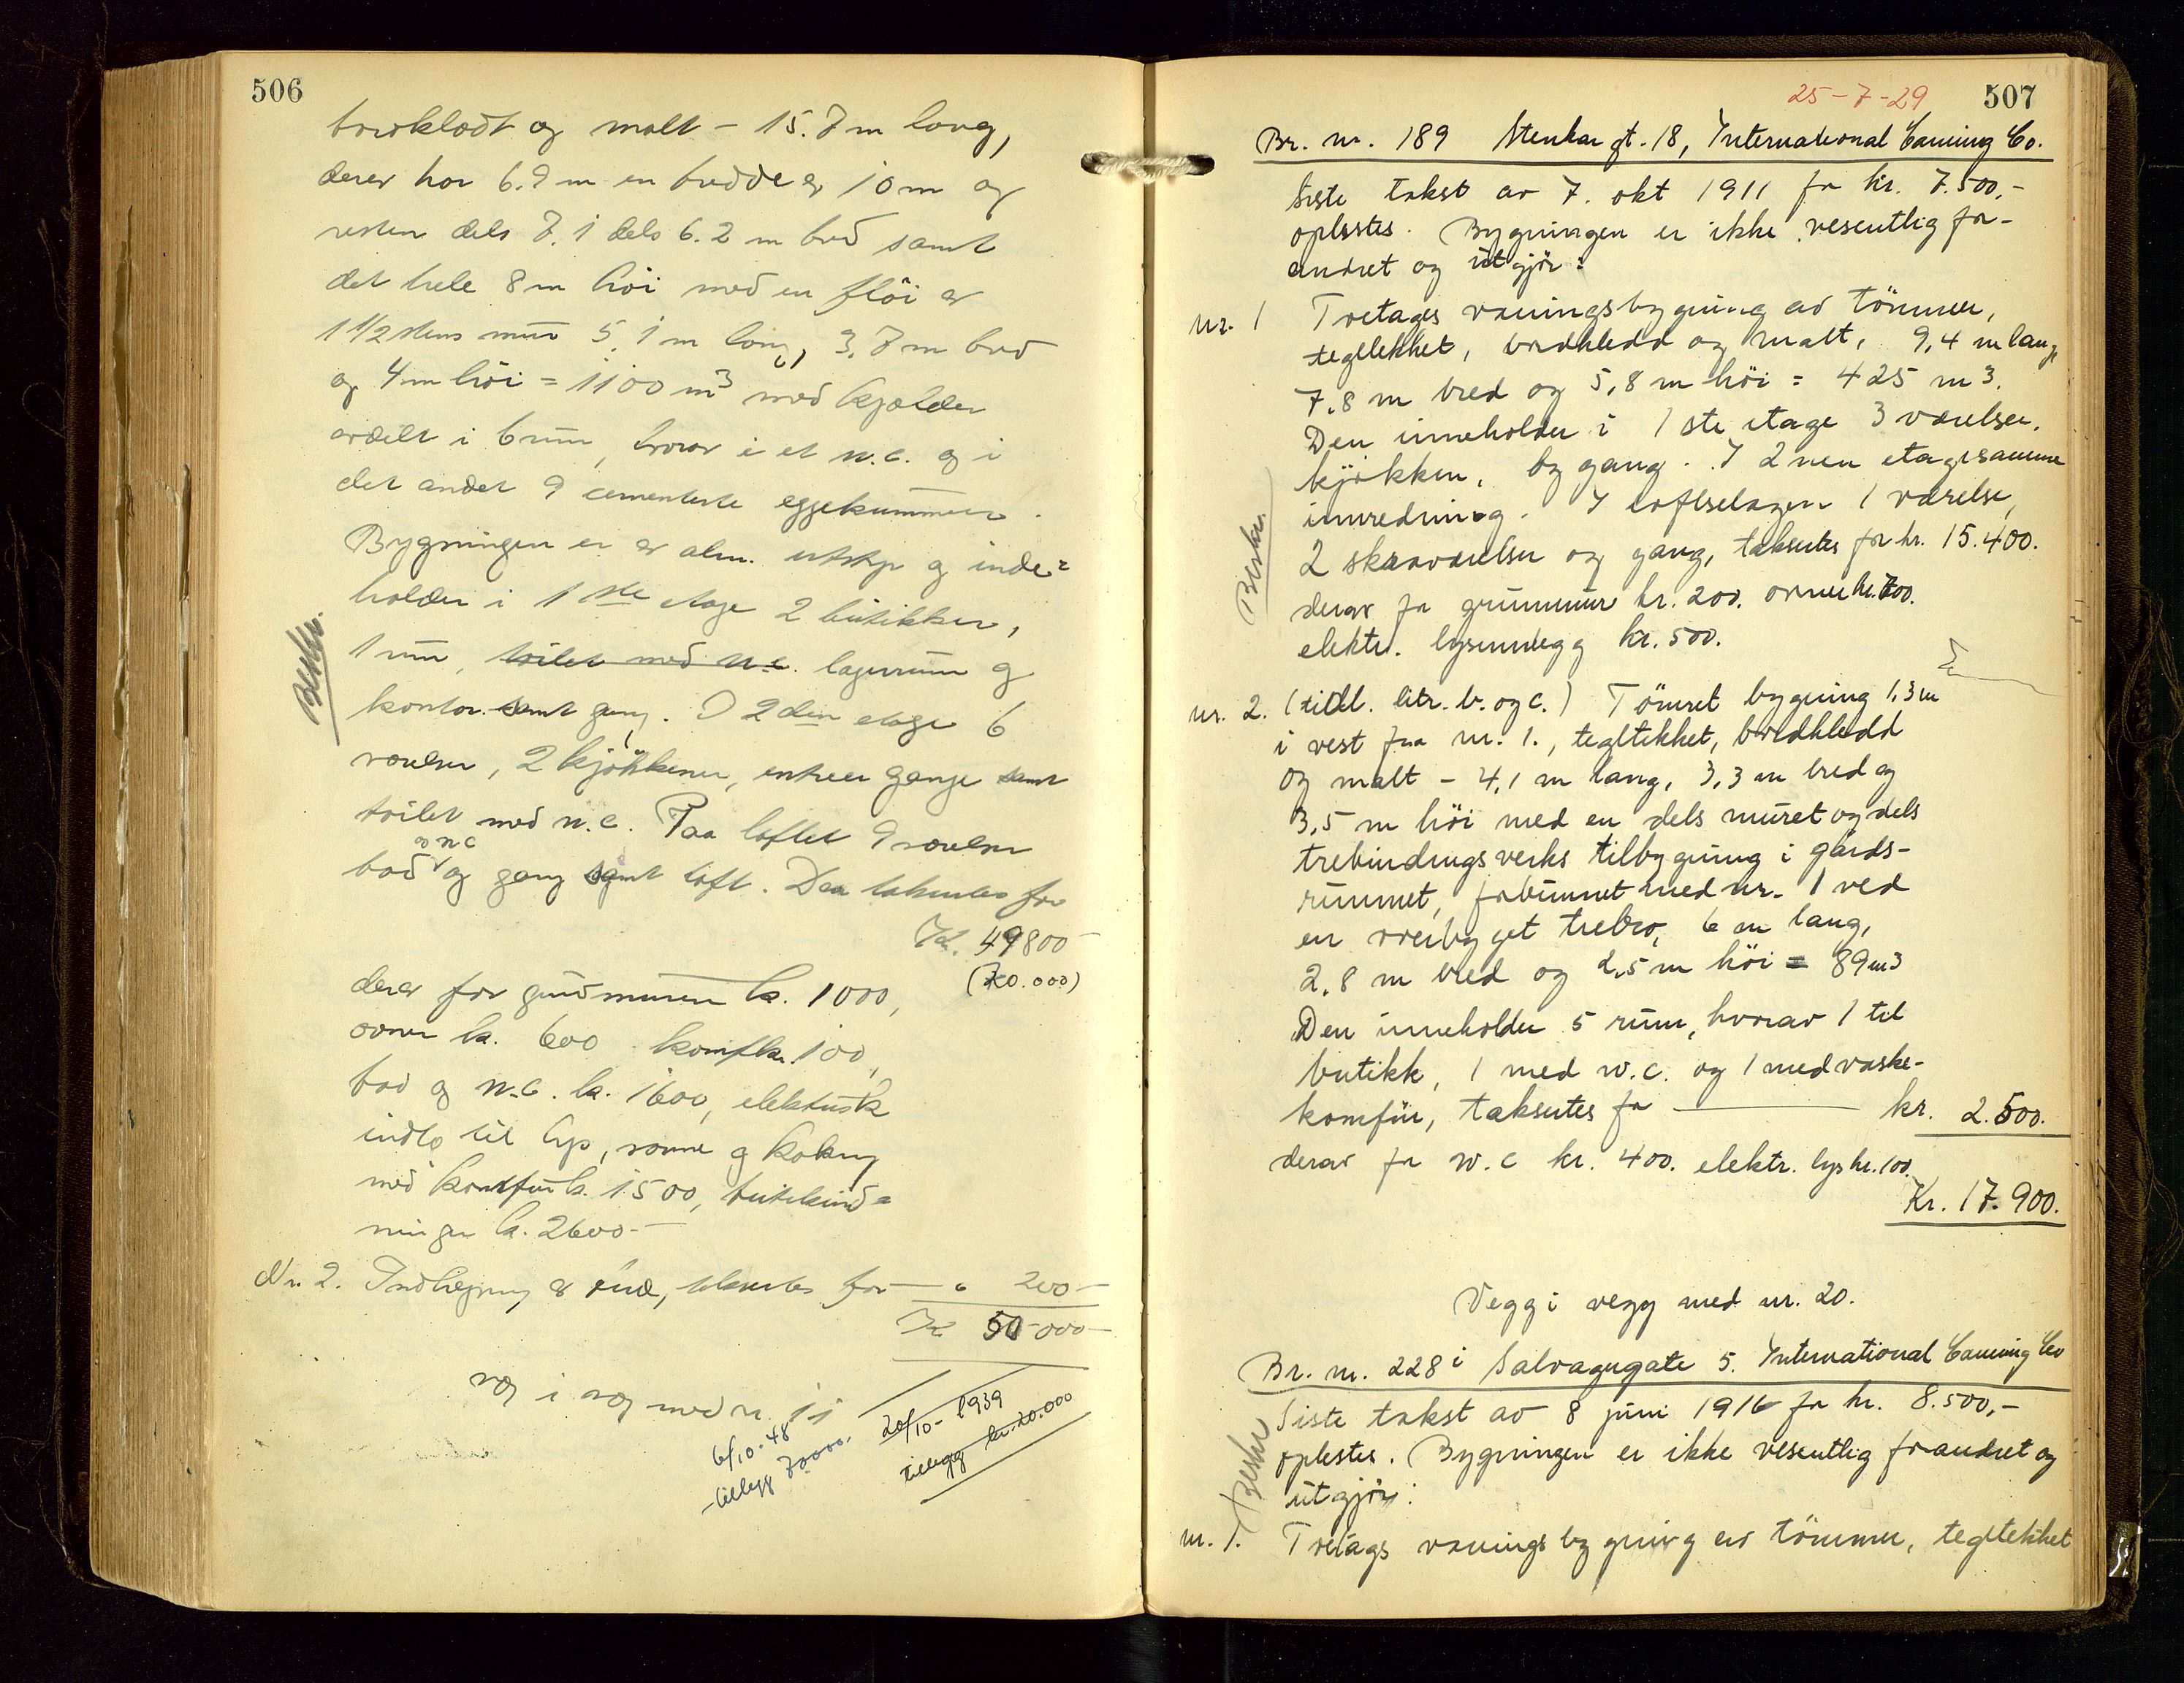 506
bordklædt og malt - 15.7 m lang,
derav har 6.9 m en bredde av 10 m og
resten dels 7.1 dels 6.2 m bred samt
det hele 8 m höi med en flöi av
1 1/2 stens mur 5.1 m lang, 3.7 m bred
og 4 m höi = 1100 m3 med kjælder
avdelt i 6 rum, hvorav i et w.c. og i
det andet 9 cementerte eggekummer.
Bygningen er av alm. utstyr og inde-
holder i 1ste etage 2 butikker,
1 rum, toilet med w.c. lagerrum og
kontor samt gang. I 2den etage 6
værelser, 2 kjökkener, entreer gange samt
toilet med w.c. Paa loftet 9 værelser
og wc
bad og gang samt loft. Den takseres for
Kr. 49800-
(70.000)
derav for grundmuren kr. 1000,
ovner kr. 600 komf kr. 100,
bad og w.c. kr. 1600, elektrisk
indlæg til lys, varme og kokning
med komfur kr. 1500, butikkind-
ninger kr. 2600-
Beskr.
Nr. 2. Indhegning av , takseres for — " 200-
Kr 50 000-
væg i væg med nr. 11
6/10-48
tillegg 70000.
20/10- 1939
tillegg kr. 20.000
25-7-29 507
Br. nr. 189 Stenkar gt. 18, International Canning Co.
Siste takst av 7. okt 1911 for kr. 7.500,-
oplestes. Bygningen er ikke vesentlig for-
andret og utgjör:
nr. 1 Toetages vaaningsbygning av tömmer,
tegltekket, bordkledd og malt, 9,4 m lang
7,8 m bred og 5,8 m höi = 425 m3.
Den inneholder i 1ste etage 3 værelser,
kjökken, og gang. I 2nen etage samme
innredning. I loftsetagen 1 værelse,
2 skraaværelser og gang, takseres for kr. 15.400.
derav for grunnmur kr. 200. ovner kr. 700.
elektr. lysinnlegg kr. 500.
Beskr.
nr. 2. (tidl. litr. b. og c.) Tömret bygning 1,3 m
i vest fra nr. 1., tegltekket, bordkledd
og malt - 4,1 m lang, 3,3 m bred og
3,5 m höi med en dels muret og dels
trebindingsverks tilbygning i gårds-
rummet, forbunnet med nr. 1 ved
en overbygget trebro, 6 m lang,
2,8 m bred og 2,5 m höi = 89 m3
Den inneholder 5 rum, hvorav 1 til
butikk, 1 med w.c. og 1 med vaske-
komfür, takseres for — kr. 2.500.
derav for w.c kr. 400. elektr. lys kr. 100.
Kr. 17.900.
Vegg i vegg med nr. 20.
Br. nr. 228 i Salvagergate 5. International Canning Co
Siste takst av 8 juni 1916 for kr. 8.500,-
oplestes. Bygningen er ikke vesentlig forandret og
utgjör:
Beskr
nr. 1. Toetages vaaningsbygning av tömmer, tegltekket